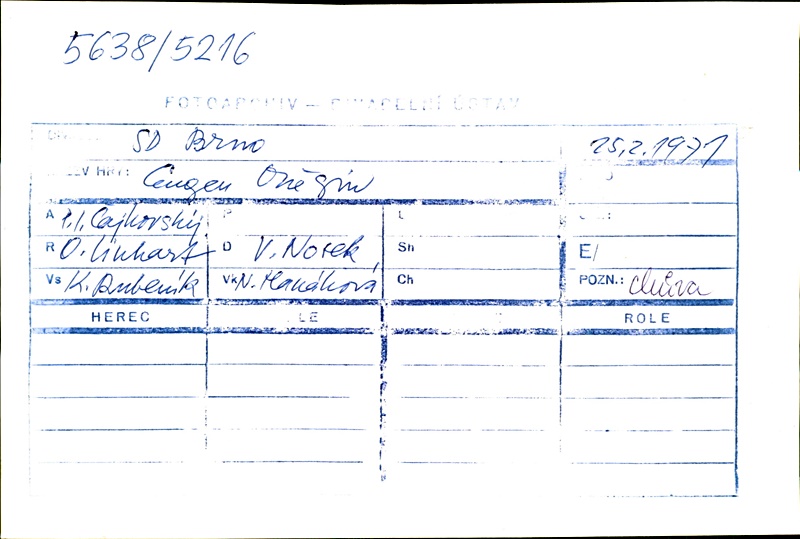 5638/5216
FOTOARCHIV – DIVADELNÍ ÚSTAV
SD Brno 25.2.1971
HRY: Eugen Oněgin
A P.I. Čajkovský P L
R O. Linhart D V. Nosek Sh E/
Vs K. Dubeník Vk N. Hanáková Ch POZN.: chůva
HEREC LE ROLE